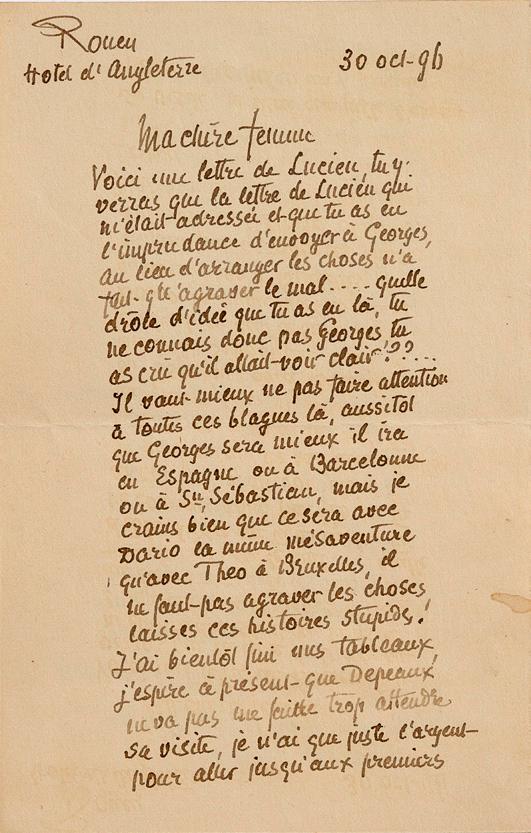 Rouen
Hotel d'Angleterre
30 oct-96
Ma chère femme
Voici une lettre de Lucien, tu y
verras que la lettre de Lucien qui
m'était adressée et que tu as eu
l'imprudance d'envoyer à Georges,
au lieu d'arranger les choses n'a
fait qu'agraver le mal.... quelle
drôle d'idée que tu as eu là, tu
ne connais donc pas Georges tu
as cru qu'il allait-voir clair!??....
Il vaut-mieux ne pas faire attention
à toutes ces blagues là, aussitôt
que Georges sera mieux il ira
en Espagne ou à Barcelonne
ou à St, Sébastien, mais je
crains bien que ce sera avec
Dario la même mésaventure
qu'avec Theo à Bruxelles, il
ne faut-pas agraver les choses,
laisses ces histoires stupids!
J'ai bientôt fini mes tableaux,
j'espère à présent-que Depeaux
ne va pas me faire trop attendre
sa visite, je n'ai que juste l'argent-
pour aller jusqu'aux premiers